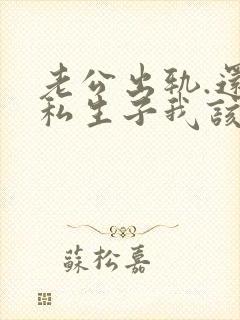 老公出轨.還
私生子我該
蘇松嘉